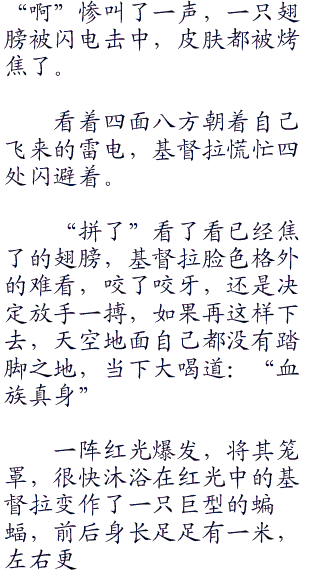 “啊”惨叫了一声，一只翅
膀被闪电击中，皮肤都被烤
焦了。
看着四面八方朝着自己
飞来的雷电，基督拉慌忙四
处闪避着。
“拼了”看了看已经焦
了的翅膀，基督拉脸色格外
的难看，咬了咬牙，还是决
定放手一搏，如果再这样下
去，天空地面自己都没有踏
脚之地，当下大喝道：“血
族真身”
一阵红光爆发，将其笼
罩，很快沐浴在红光中的基
督拉变作了一只巨型的蝙
蝠，前后身长足足有一米，
左右更